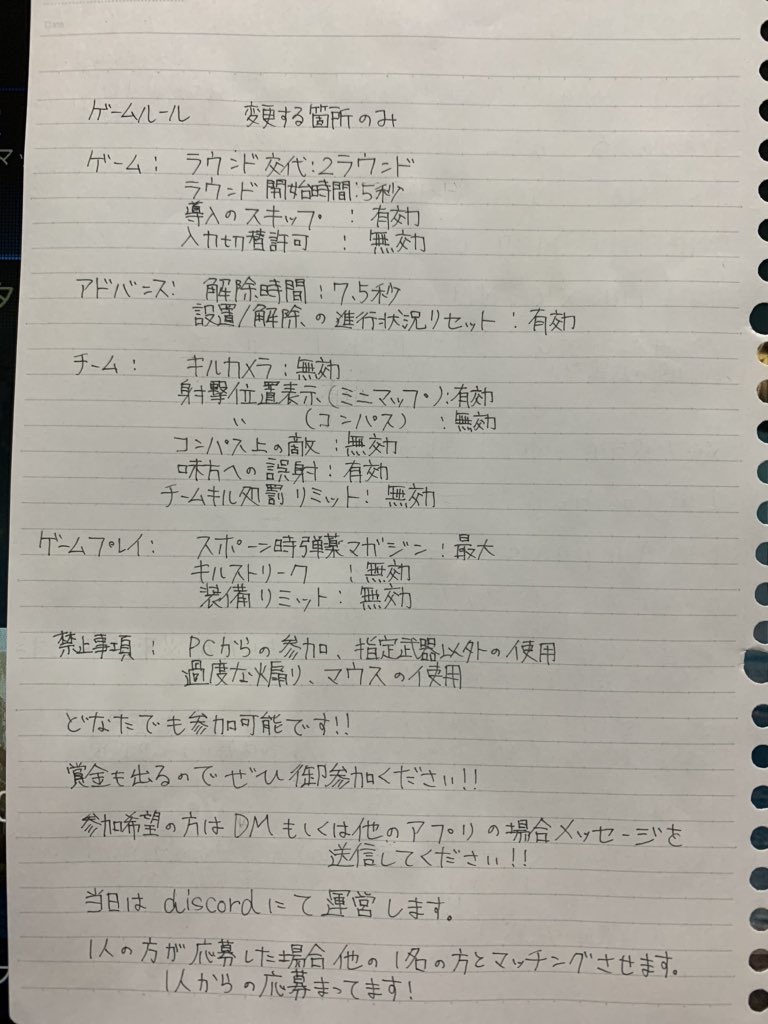 Date
ゲームルール　変更する箇所のみ
ゲーム： ラウンド交代：2ラウンド
ラウンド開始時間：5秒
導入のスキップ ： 有効
入力切替許可 ： 無効
アドバンス： 解除時間：7.5秒
設置/解除の進行状況リセット ： 有効
チーム ： キルカメラ：無効
射撃位置表示(ミニマップ)：有効
〃 (コンパス) ：無効
コンパス上の敵 ：無効
味方への誤射 ：有効
チームキル処罰リミット： 無効
ゲームプレイ： スポーン時弾薬マガジン：最大
キルストリーク ：無効
装備リミット：無効
禁止事項 ： PCからの参加、指定武器以外の使用
過度な煽り、マウスの使用
どなたでも参加可能です!!
賞金も出るのでぜひ御参加ください!!
参加希望の方はDMもしくは他のアプリの場合メッセージを
送信してください!!
当日はdiscordにて運営します。
1人の方が応募した場合他の1名の方とマッチングさせます。
1人からの応募まってます!